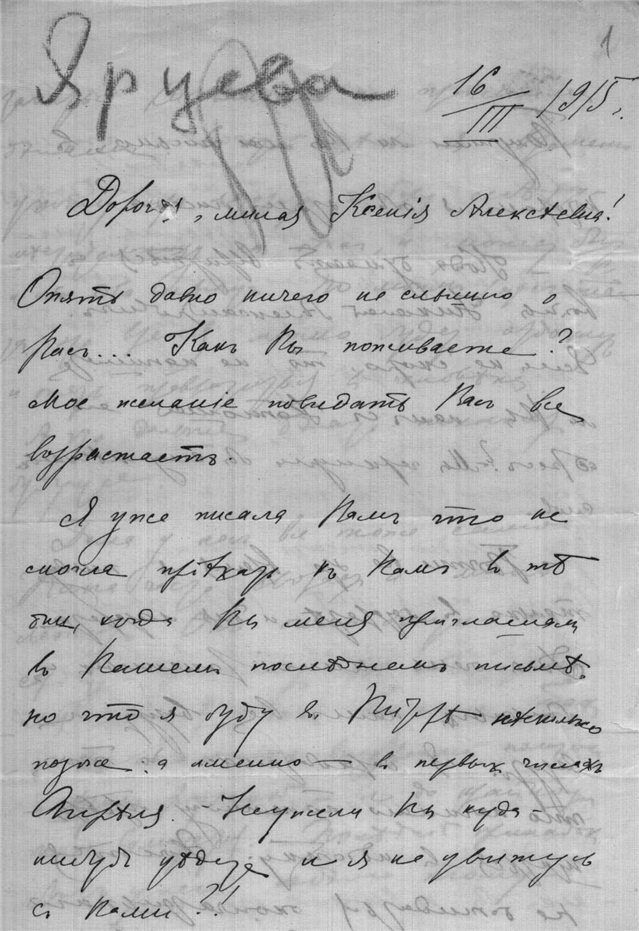 1
Ярцева
16/III 1915.
Дорогая, милая Ксенія Алексѣевна!
Опять давно ничего не слышно о
Васъ... Какъ Вы поживаете?
Мое желаніе повидать Васъ все
возрастаетъ.
Я уже писала Вамъ что не
смогла пріѣхать къ Вамъ въ тѣ
дни, когда Вы меня приглашали
въ Вашемъ послѣднемъ письмѣ,
но что я буду въ нѣсколько
позже, а именно — въ первыхъ числахъ
Апрѣля. Неужели Вы куда
нибудь уѣдете и я не увижусь
съ Вами?!!